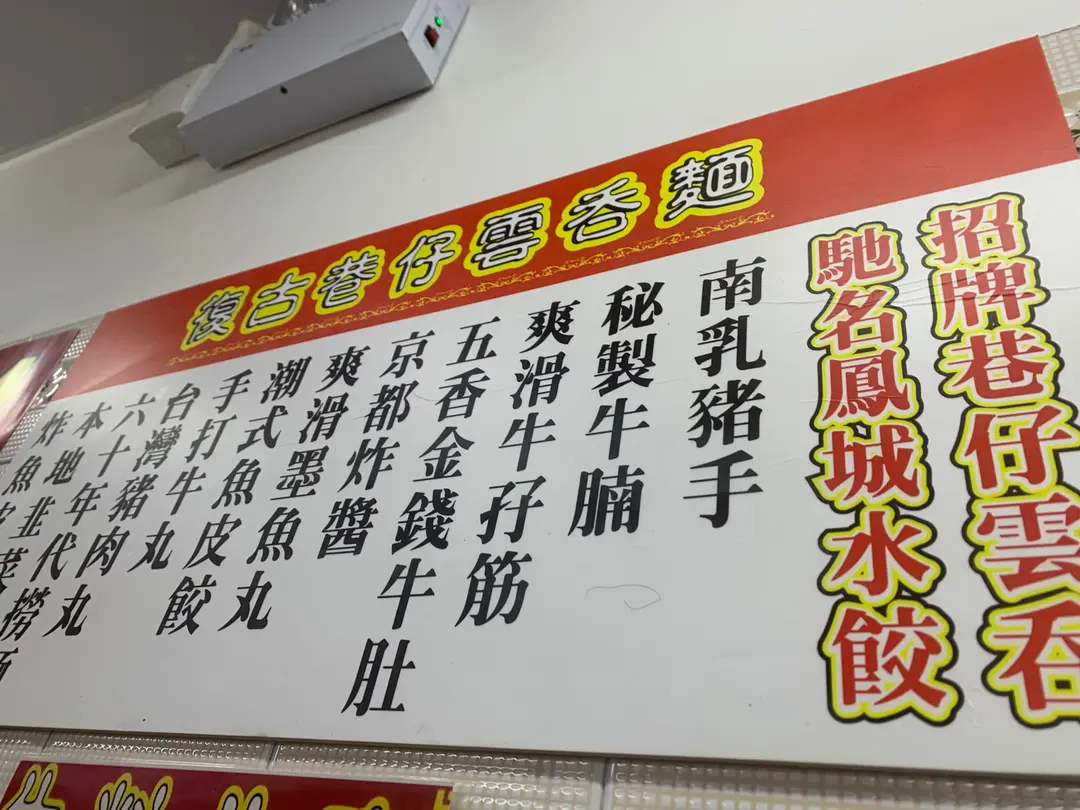 復古巷仔雲吞麵
招牌巷仔雲吞
馳名鳳城水餃
南乳豬手
秘製牛腩
爽滑牛孖筋
五香金錢牛肚
京都炸醬
爽滑墨魚丸
潮式魚皮餃
手打牛丸
台灣豬肉丸
六十年代撈
本地韭菜
炸魚皮